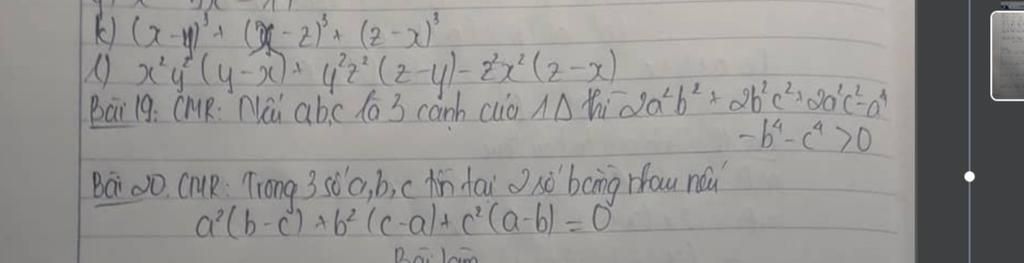 k) (x-y)³ + (y-z)³ + (z-x)³
l) x²y²(y-x) + y²z²(z-y) - z²x²(z-x)
Bài 19: CMR: Nếu a,b,c là 3 cạnh của 1Δ thì 2a²b² + 2b²c² + 2a²c² - a⁴
- b⁴ - c⁴ > 0
Bài 20. CMR: Trong 3 số a, b, c tồn tại 2 số bằng nhau nếu
a²(b-c) + b²(c-a) + c²(a-b) = 0
Bài làm